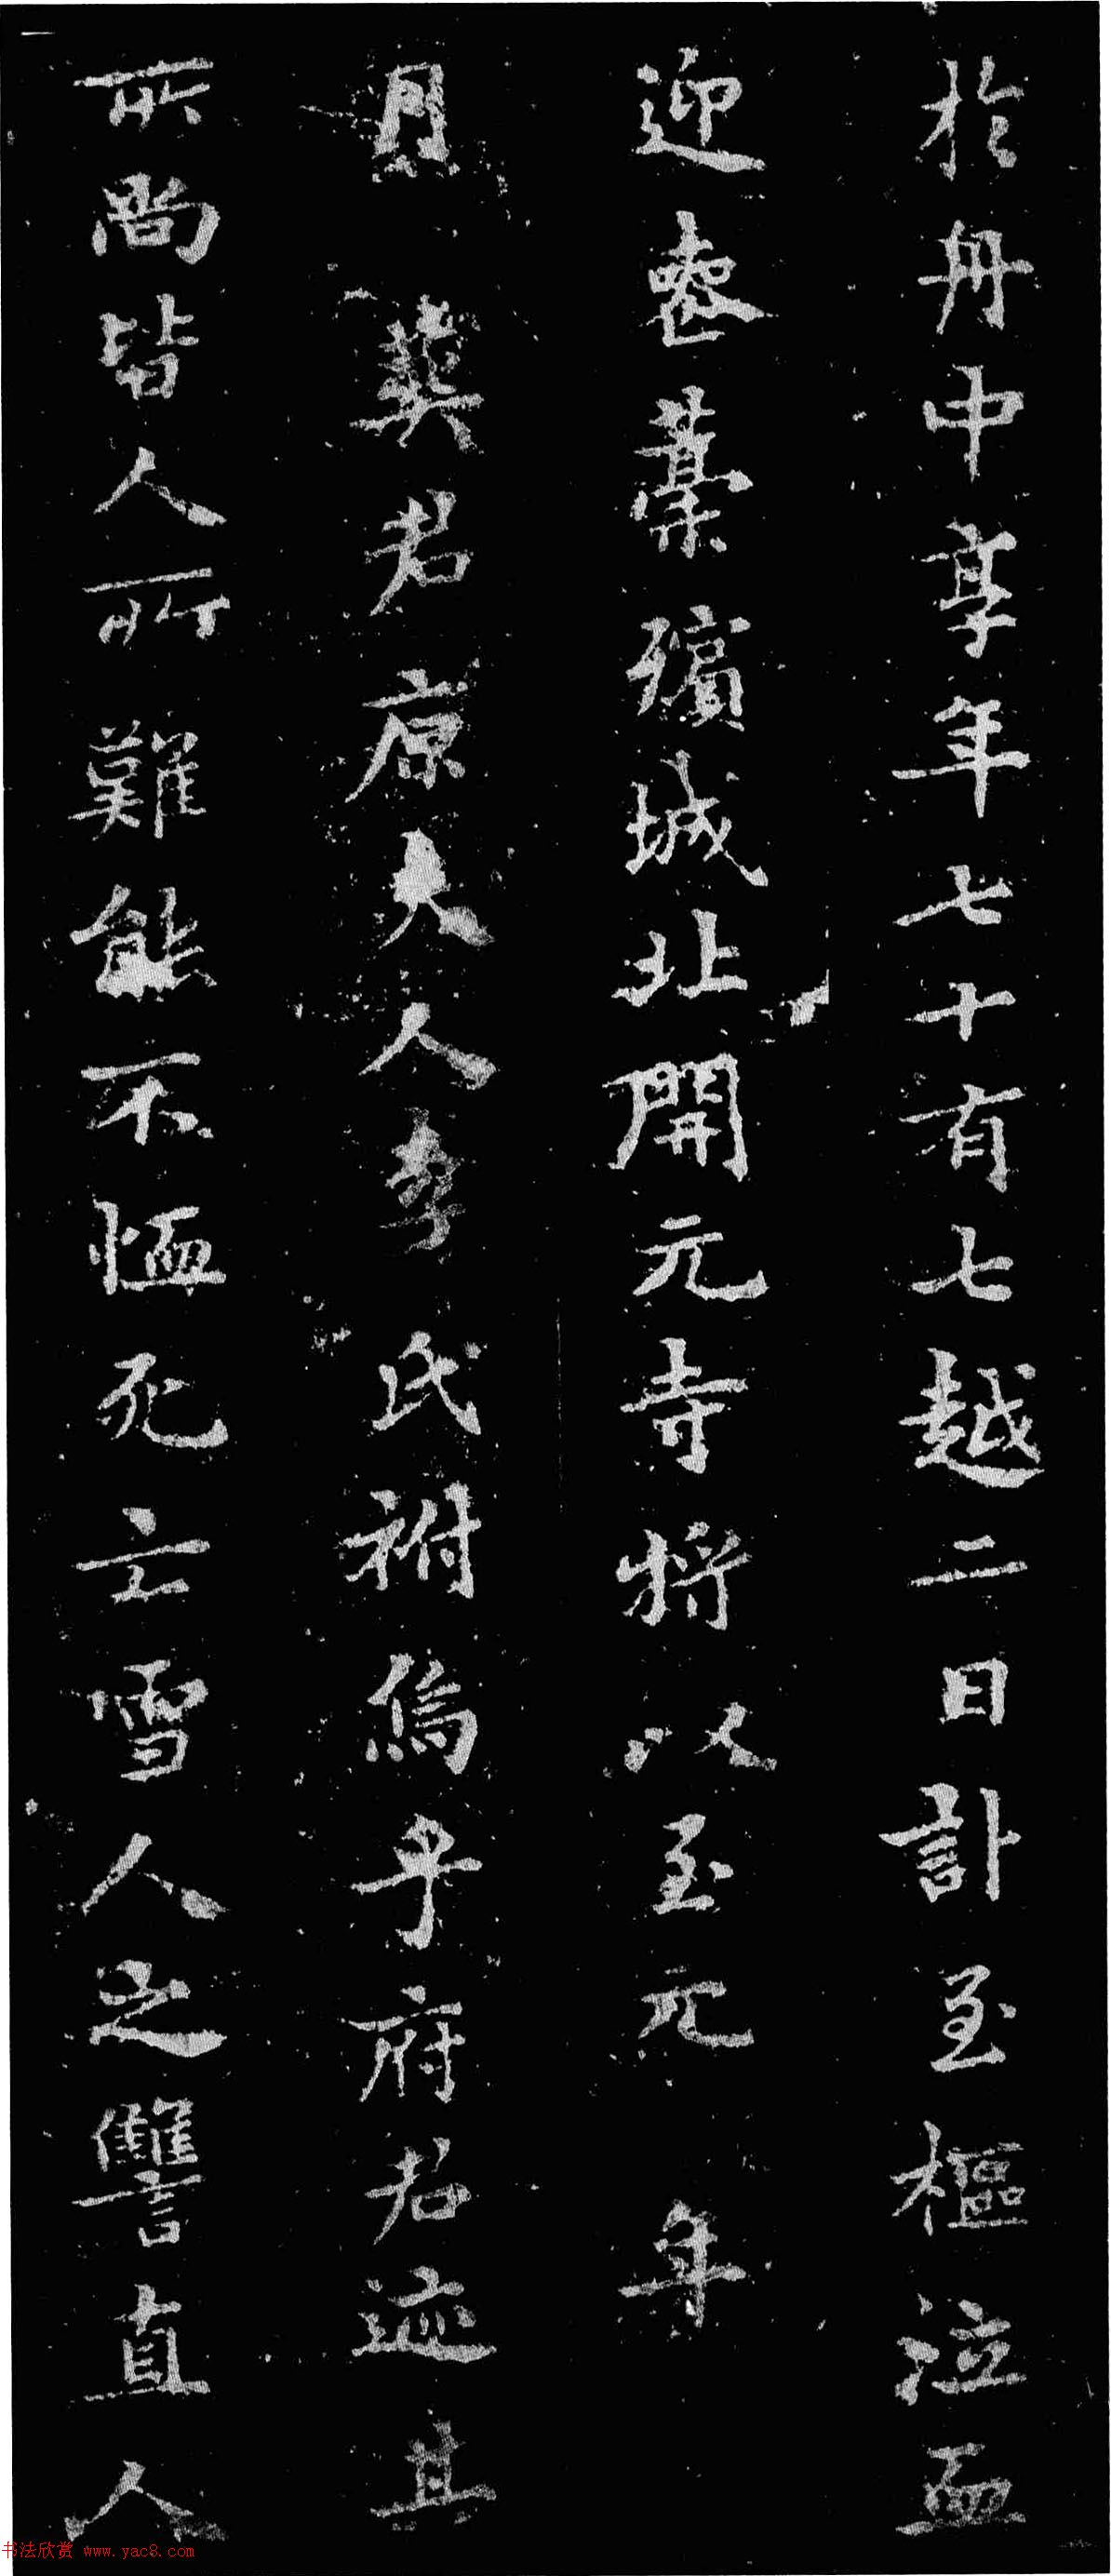 於舟中享年七十有七越二日訃至樞泣血
迎喪藁殯城北開元寺將以至元 年
月 葬君康夫人李氏祔烏乎府君迹其
所尚皆人所難能不恤死亡雪人之讐直人
书法欣赏 www.yac8.com